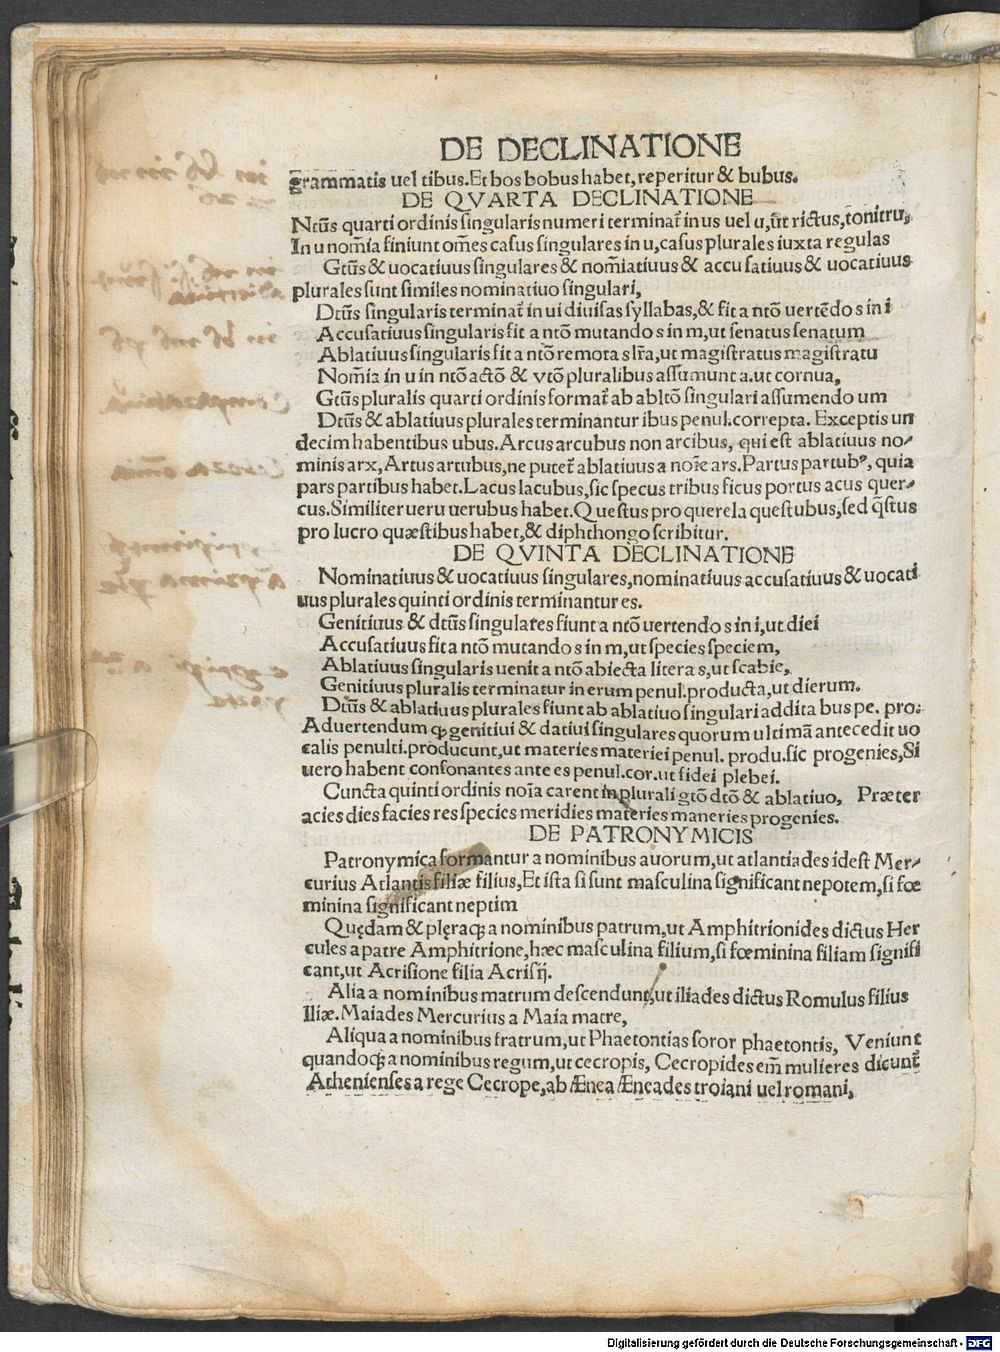 DE DECLINATIONE
grammatis uel tibus. Et bos bobus habet, reperitur & bubus.
DE QVARTA DECLINATIONE
Ntũs quarti ordinis singularis numeri terminat᷑ in us uel u, ut̃ rictus, tonitru,
In u nom̃ia finiunt om̃es casus singulares in u, casus plurales iuxta regulas
Gtũs & uocatiuus singulares & nom̃iatiuus & accusatiuus & uocatiuus
plurales sunt similes nominatiuo singulari,
Dtũs singularis terminat᷑ in ui diuisas syllabas, & fit a ntõ uertẽdo s in i
Accusatiuus singularis fit a ntõ mutando s in m, ut senatus senatum
Ablatiuus singularis fit a ntõ remota s lr̃a, ut magistratus magistratu
Nom̃ia in u in ntõ actõ & vtõ pluralibus assumunt a. ut cornua,
Gtũs pluralis quarti ordinis format᷑ ab abltõ singulari assumendo um
Dtũs & ablatiuus plurales terminantur ibus penul. correpta. Exceptis un
decim habentibus ubus. Arcus arcubus non arcibus, qui est ablatiuus no-
minis arx, Artus artubus, ne putet᷑ ablatiuus a noĩe ars. Partus partubꝰ, quia
pars partibus habet. Lacus lacubus, sic specus tribus ficus portus acus quer-
cus. Similiter ueru uerubus habet. Questus pro querela questubus, sed q̃stus
pro lucro quæstibus habet, & diphthongo scribitur.
DE QVINTA DECLINATIONE
Nominatiuus & uocatiuus singulares, nominatiuus accusatiuus & uocati
uus plurales quinti ordinis terminantur es.
Genitiuus & dtũs singulares fiunt a ntõ uertendo s in i, ut diei
Accusatiuus fit a ntõ mutando s in m, ut species speciem,
Ablatiuus singularis uenit a ntõ abiecta litera s, ut scabie,
Genitiuus pluralis terminatur in erum penul. producta, ut dierum.
Dtũs & ablatiuus plurales fiunt ab ablatiuo singulari addita bus pe. pro.
Aduertendum ꝙ genitiui & datiui singulares quorum ultimã antecedit uo
calis penulti. producunt, ut materies materiei penul. produ. sic progenies, Si
uero habent consonantes ante es penul. cor. ut fidei plebei.
Cuncta quinti ordinis noĩa carent in plurali gtõ dtõ & ablatiuo, Præter
acies dies facies res species meridies materies maneries progenies.
DE PATRONYMICIS
Patronymica formantur a nominibus auorum, ut atlantiades idest Mer-
curius Atlantis filiæ filius, Et ista si sunt masculina significant nepotem, si fœ
minina significant neptim
Quędam & plęraqꝫ a nominibus patrum, ut Amphitrionides dictus Her
cules a patre Amphitrione, hæc masculina filium, si fœminina filiam signifi
cant, ut Acrisione filia Acrisij.
Alia a nominibus matrum descendunt, ut iliades dictus Romulus filius
Iliæ. Maiades Mercurius a Maia matre,
Aliqua a nominibus fratrum, ut Phaetontias soror phaetontis, Veniunt
quandoqꝫ a nominibus regum, ut cecropis, Cecropides em̃ mulieres dicunt᷑
Athenienses a rege Cecrope, ab Ænea Æneades troiani uel romani,
Digitalisierung gefördert durch die Deutsche Forschungsgemeinschaft - DFG